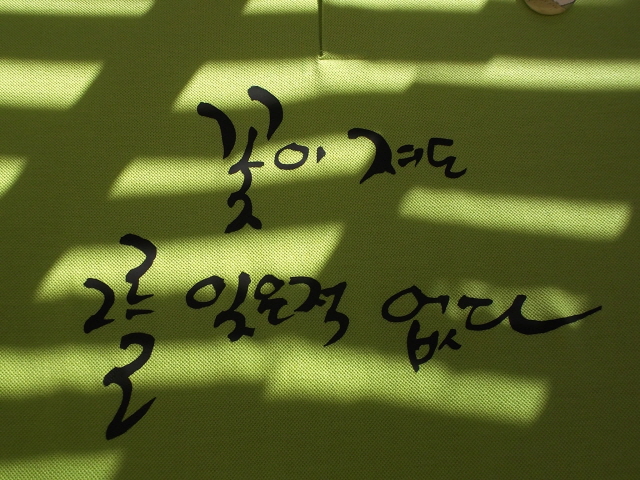 꽃이 져도
그를 잊은적 없다